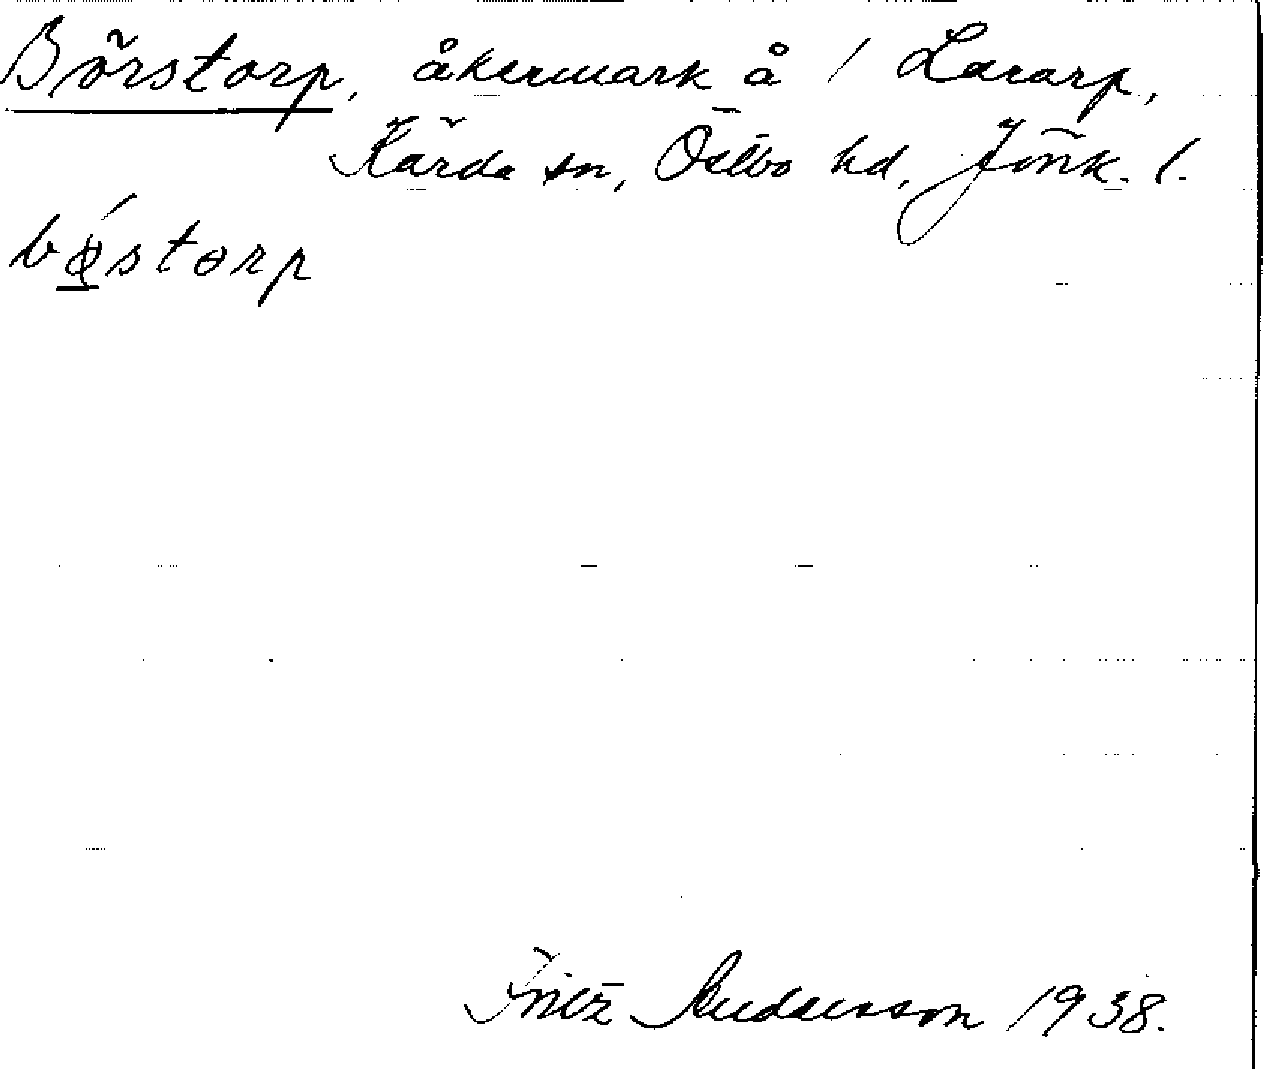 Börstorp, åkermark å / Lararp,
Kärda sn, Östbo hd, Jönk. l.
bǿstorp
Fritz Andersson 1938.